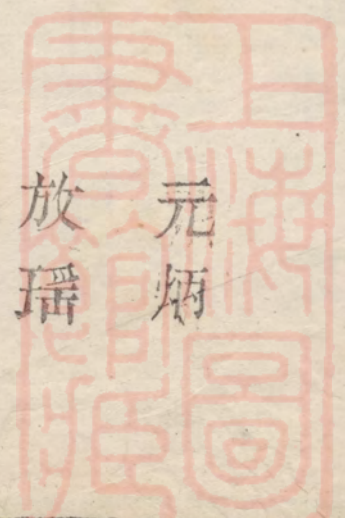 元炳
放瑶
上海圖
書館藏